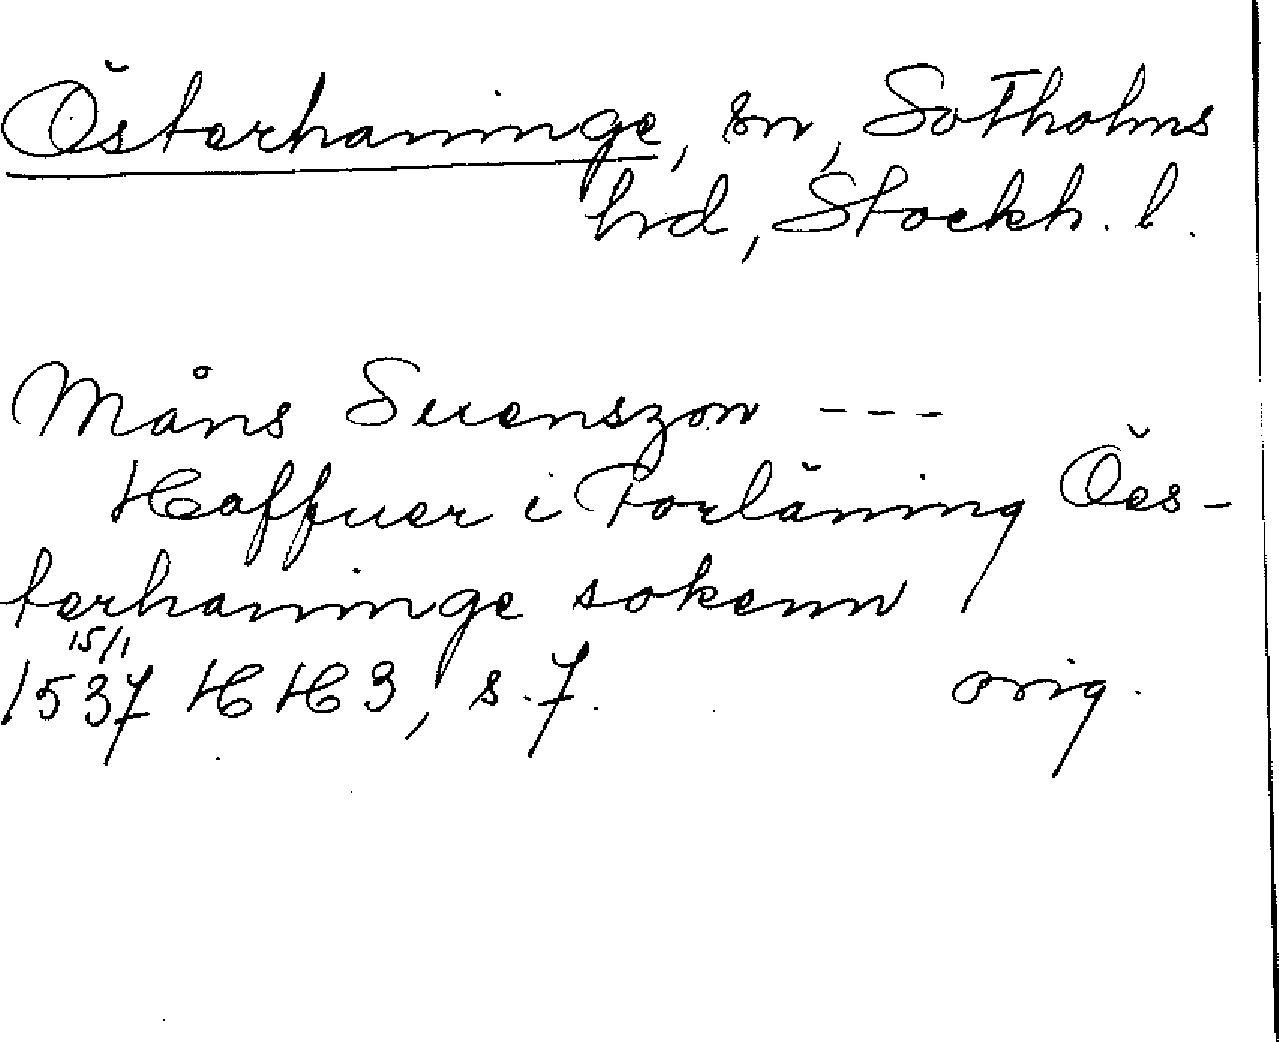 Österhaninge, sn, Sotholms
hrd, Stockh. l.
Måns Suenszon ---
Haffuer i Forläning Öes-
terhaninge sokenn
15/1
1537 HH 3, s. 7. orig.